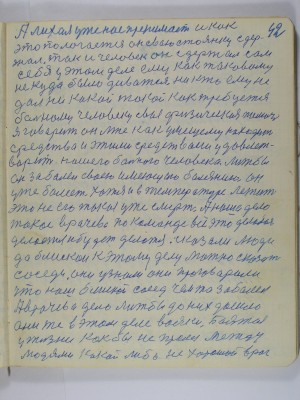 42
А лихая уже нас принимает и как
это пологается он свою стоянку сдер-
жал, так и человек он сдержал сам
себя у этом деле ему как таковому
некуда было деватся никто ему не
дал ни какой такой как требуется
больному человеку своя физическая
я говорит он мне как умеющему находит
средства и этими средствами удовлет-
варят. нашего больного человека. Лишь бы
он забыл свою имеющую болезнь. он
уже болеет. хотя и в температуре летит
это не его тыкал уже смерть. А наше дело
такое врачева по команде всё это делалось
делается и будет делатся. сказали люди
да близкие к этому делу можно сказат
соседи, они узнали они проговарили
что наш бывший сосед чем то заболел
А врачева дело лишь бы до них дошло
они же в этом деле вояки, боятся
у жизни как бы не прошел между
людями какой либо не хороший враг